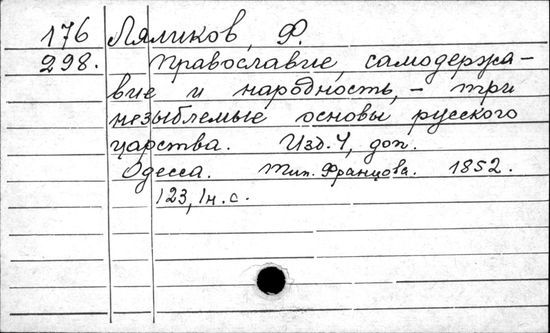 176 Ляликов, Ф.
298. Православие, самодержа-
вие и народность, - три
незыблемые основы русского
царства. Изд. 4, доп.
Одесса. Тип. Францова. 1852.
123, 1н. с.